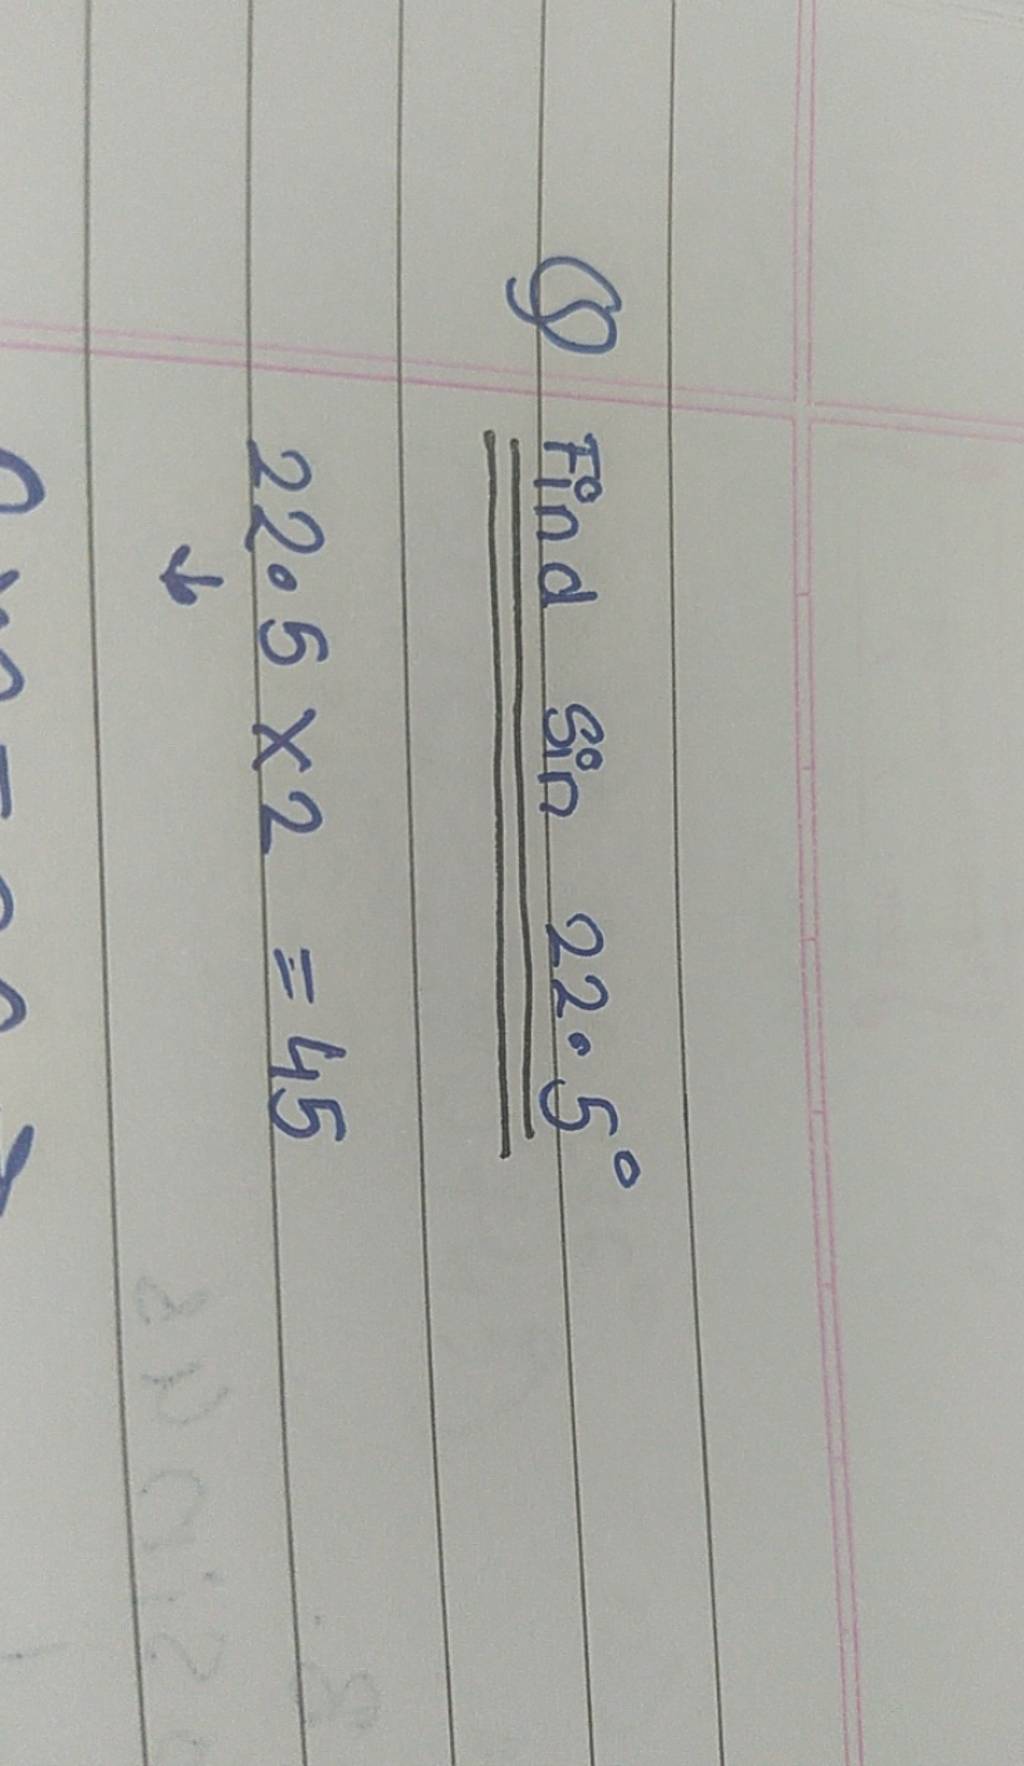 Q Find sin 22.5°
22.5 × 2 = 45
↓